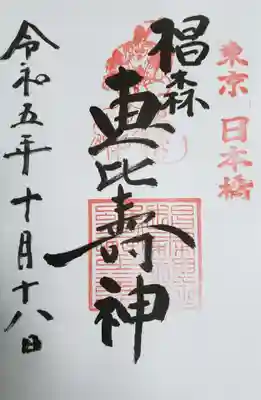 東京 日本橋
椙森
恵比壽神
令和五年十月十八日